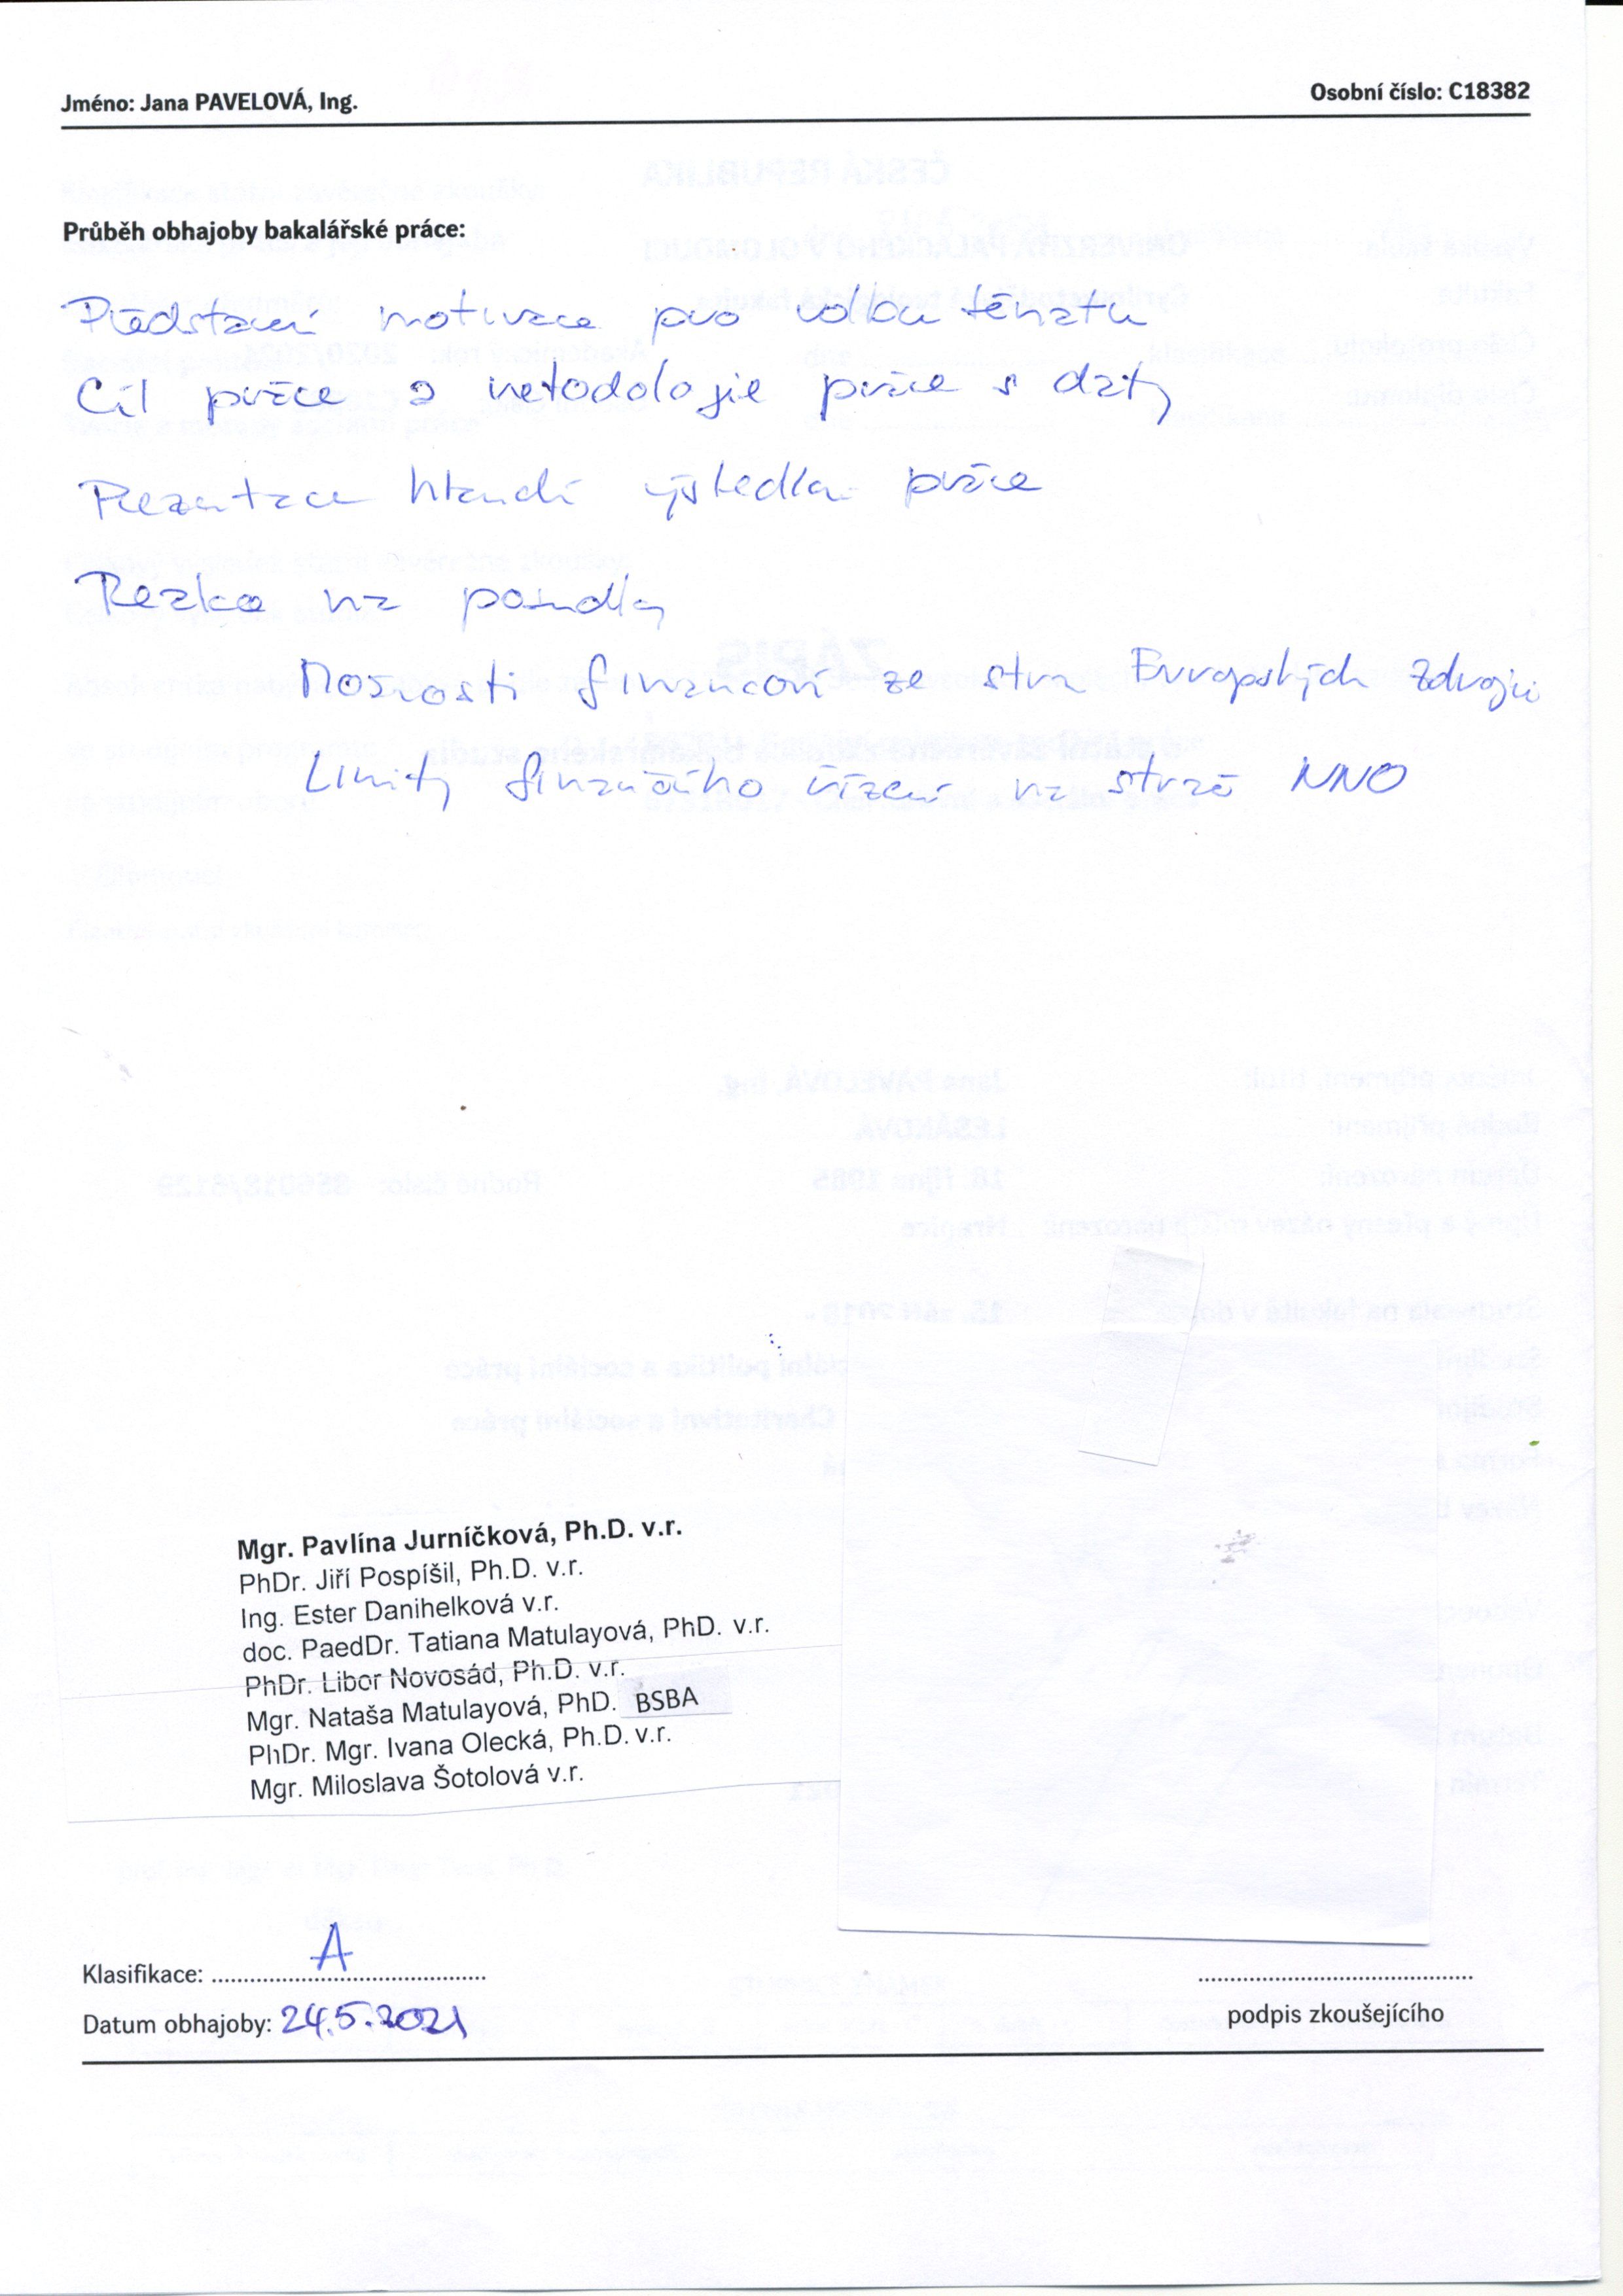 Jméno: Jana PAVELOVÁ, Ing.
Osobní číslo: C18382
Průběh obhajoby bakalářské práce:
Představení motivace pro volbu tématu
Cíl práce a metodologie práce s daty
Prezentace hlavních výsledků práce
Reakce na posudky
Možnosti financování ze stran Evropských zdrojů
Limity finančního řízení na straně NNO
Mgr. Pavlína Jurníčková, Ph.D. v.r.
PhDr. Jiří Pospíšil, Ph.D. v.r.
Ing. Ester Danihelková v.r.
doc. PaedDr. Tatiana Matulayová, PhD. v.r.
PhDr. Libor Novosád, Ph.D. v.r.
Mgr. Nataša Matulayová, PhD. BSBA
PhDr. Mgr. Ivana Olecká, Ph.D. v.r.
Mgr. Miloslava Šotolová v.r.
Klasifikace: A
Datum obhajoby: 24.5.2021
podpis zkoušejícího